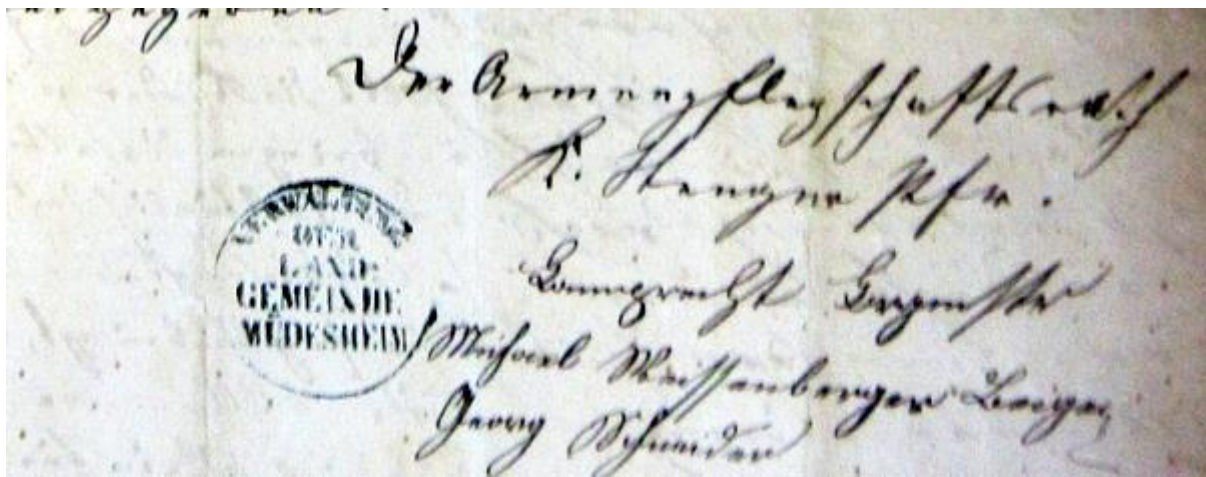 gegeben.
Der Armenpflegschaftsrath
K. Stenger Pfr.
Lamprecht Bürgermstr
Michael Weissenberger Beigeo
Georg Schneider
VERWALTUNG
DER
LAND-
GEMEINDE
MÜDESHEIM